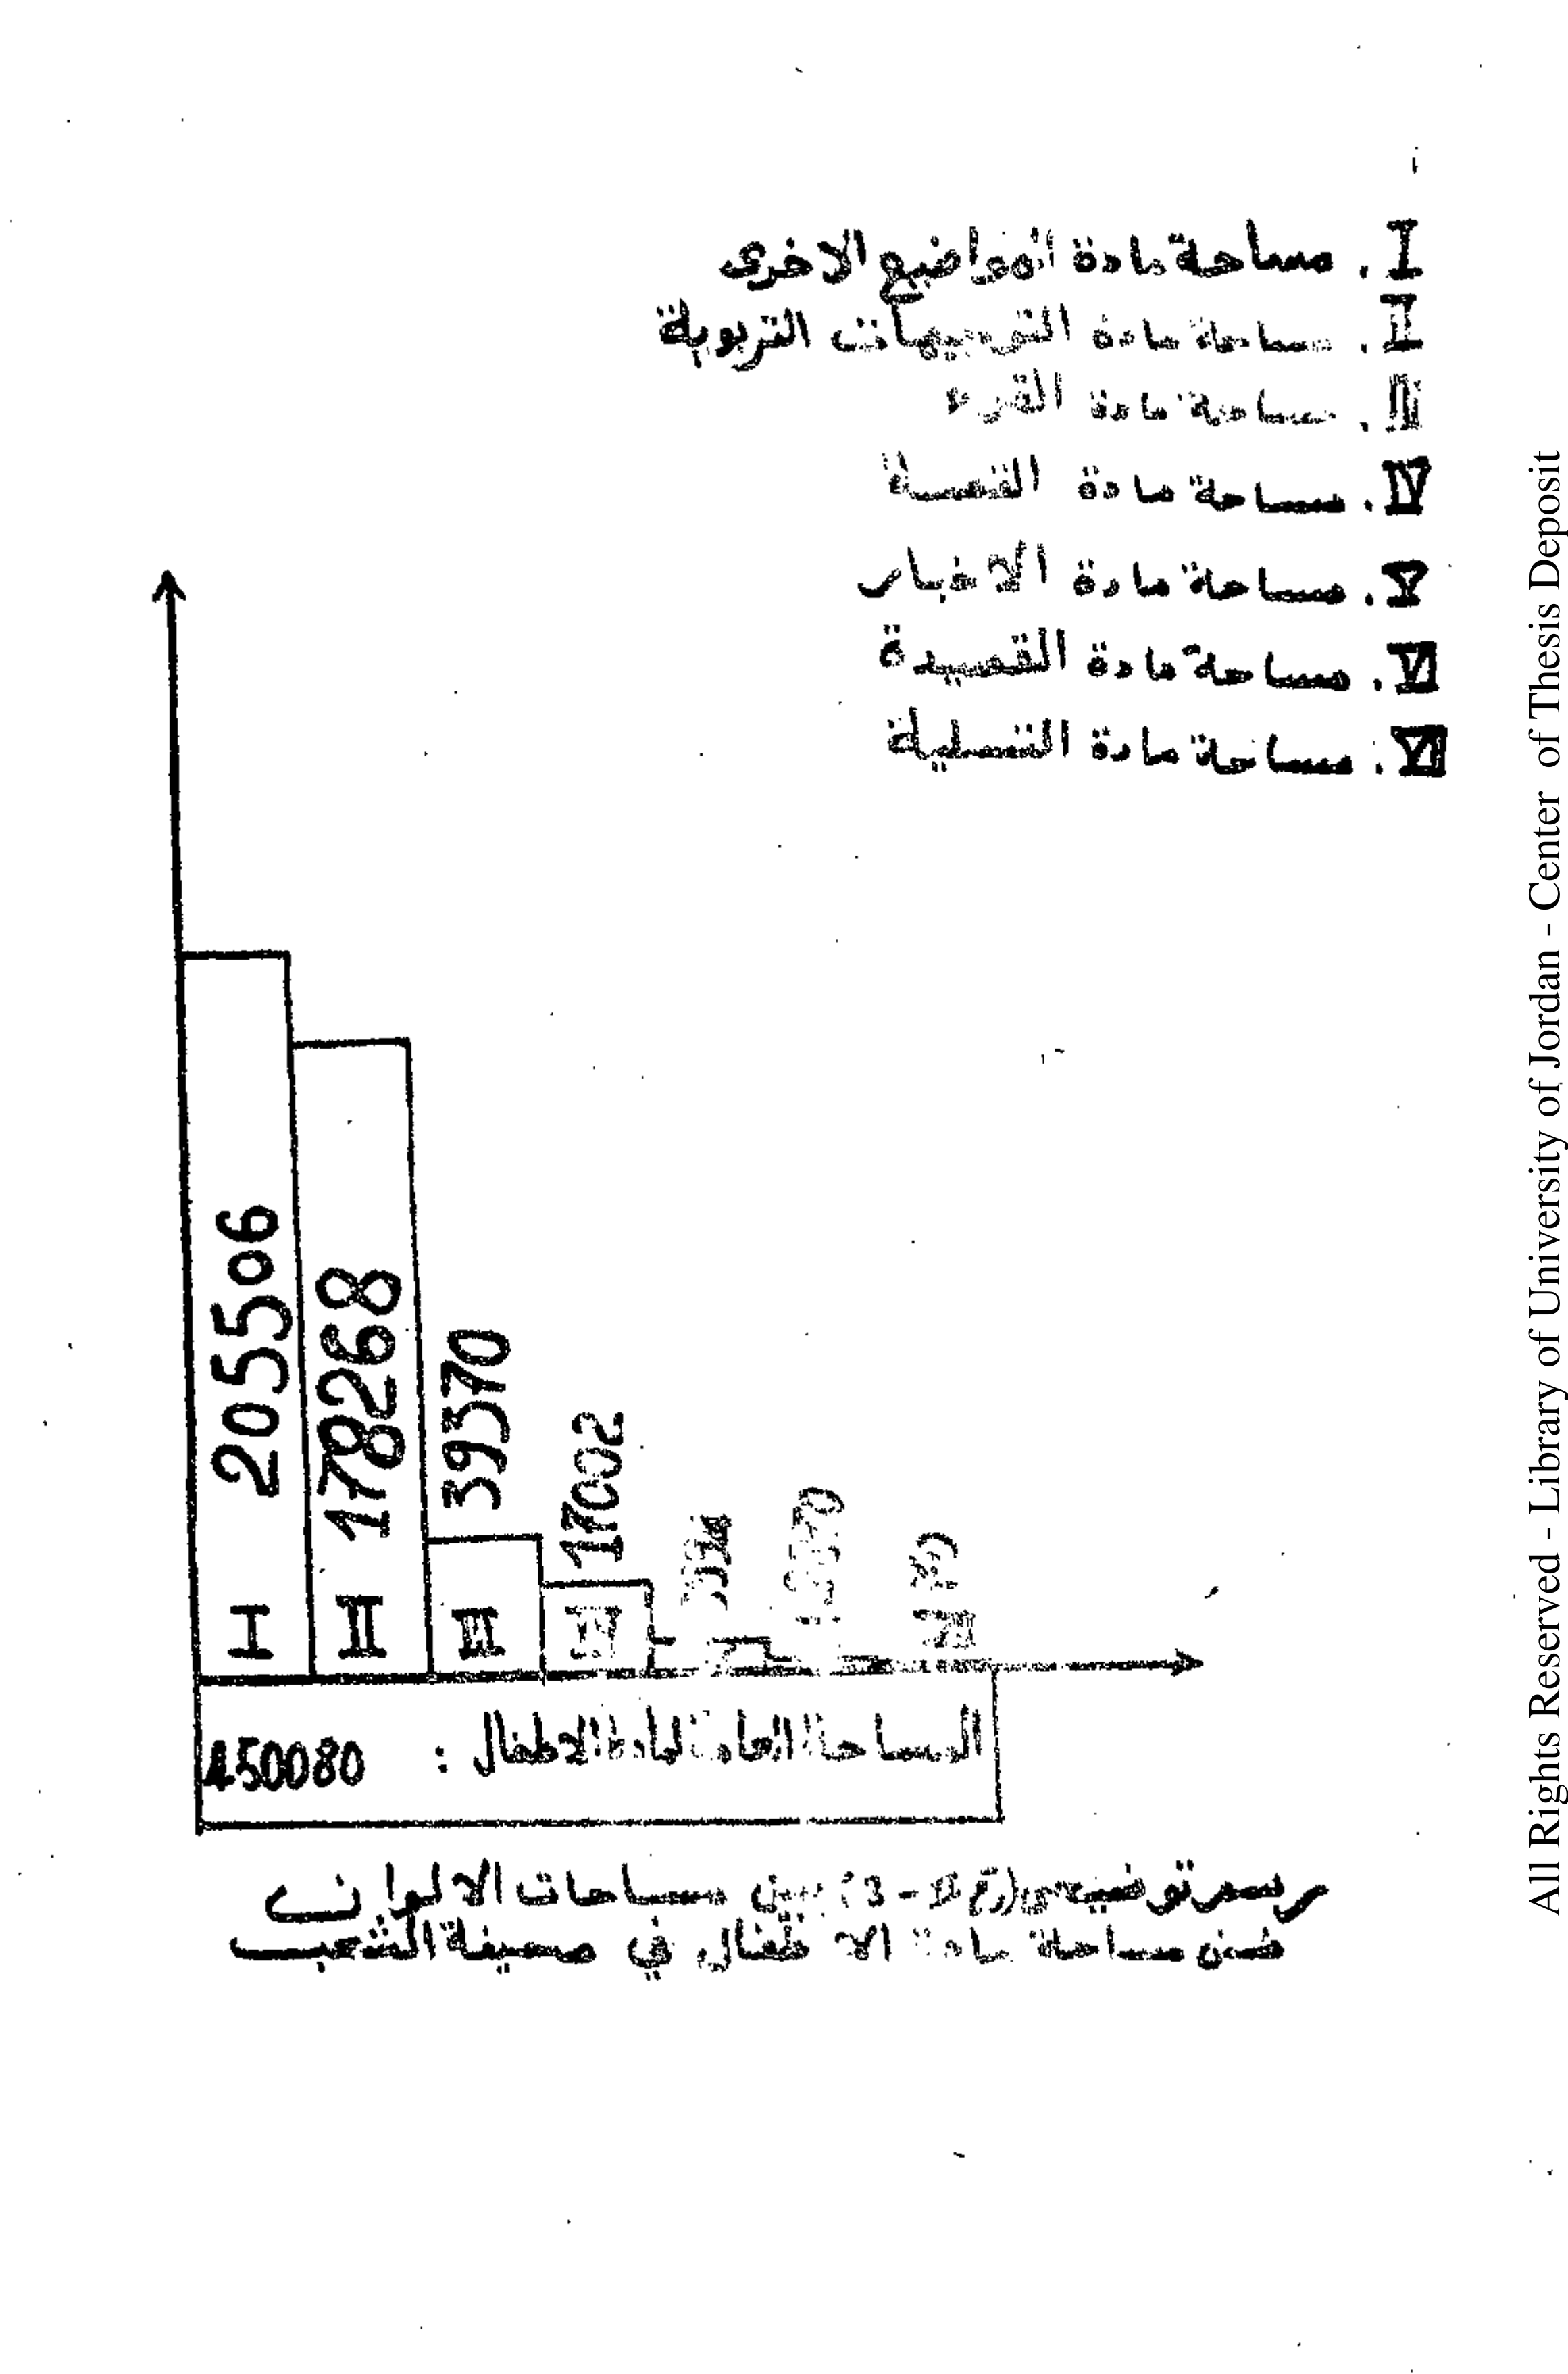 I. مساحة مادة المواضيع الاخرى
II. مساحة مادة التوجيهات التربوية
III. مساحة مادة القرء
IV. مساحة مادة القصة
V. مساحة مادة الاخبار
VI. مساحة مادة القصيدة
VII. مساحة مادة التسلية
205506
178268
39370
17002
I
II
III
IV
VII
المساحة العامة لمادة الاطفال : 450080
رسم توضيحي (رقم II - 3) يبين مساحات الالوان
ضمن مساحة مادة الاطفال في صحيفة الشعب
All Rights Reserved - Library of University of Jordan - Center of Thesis Deposit